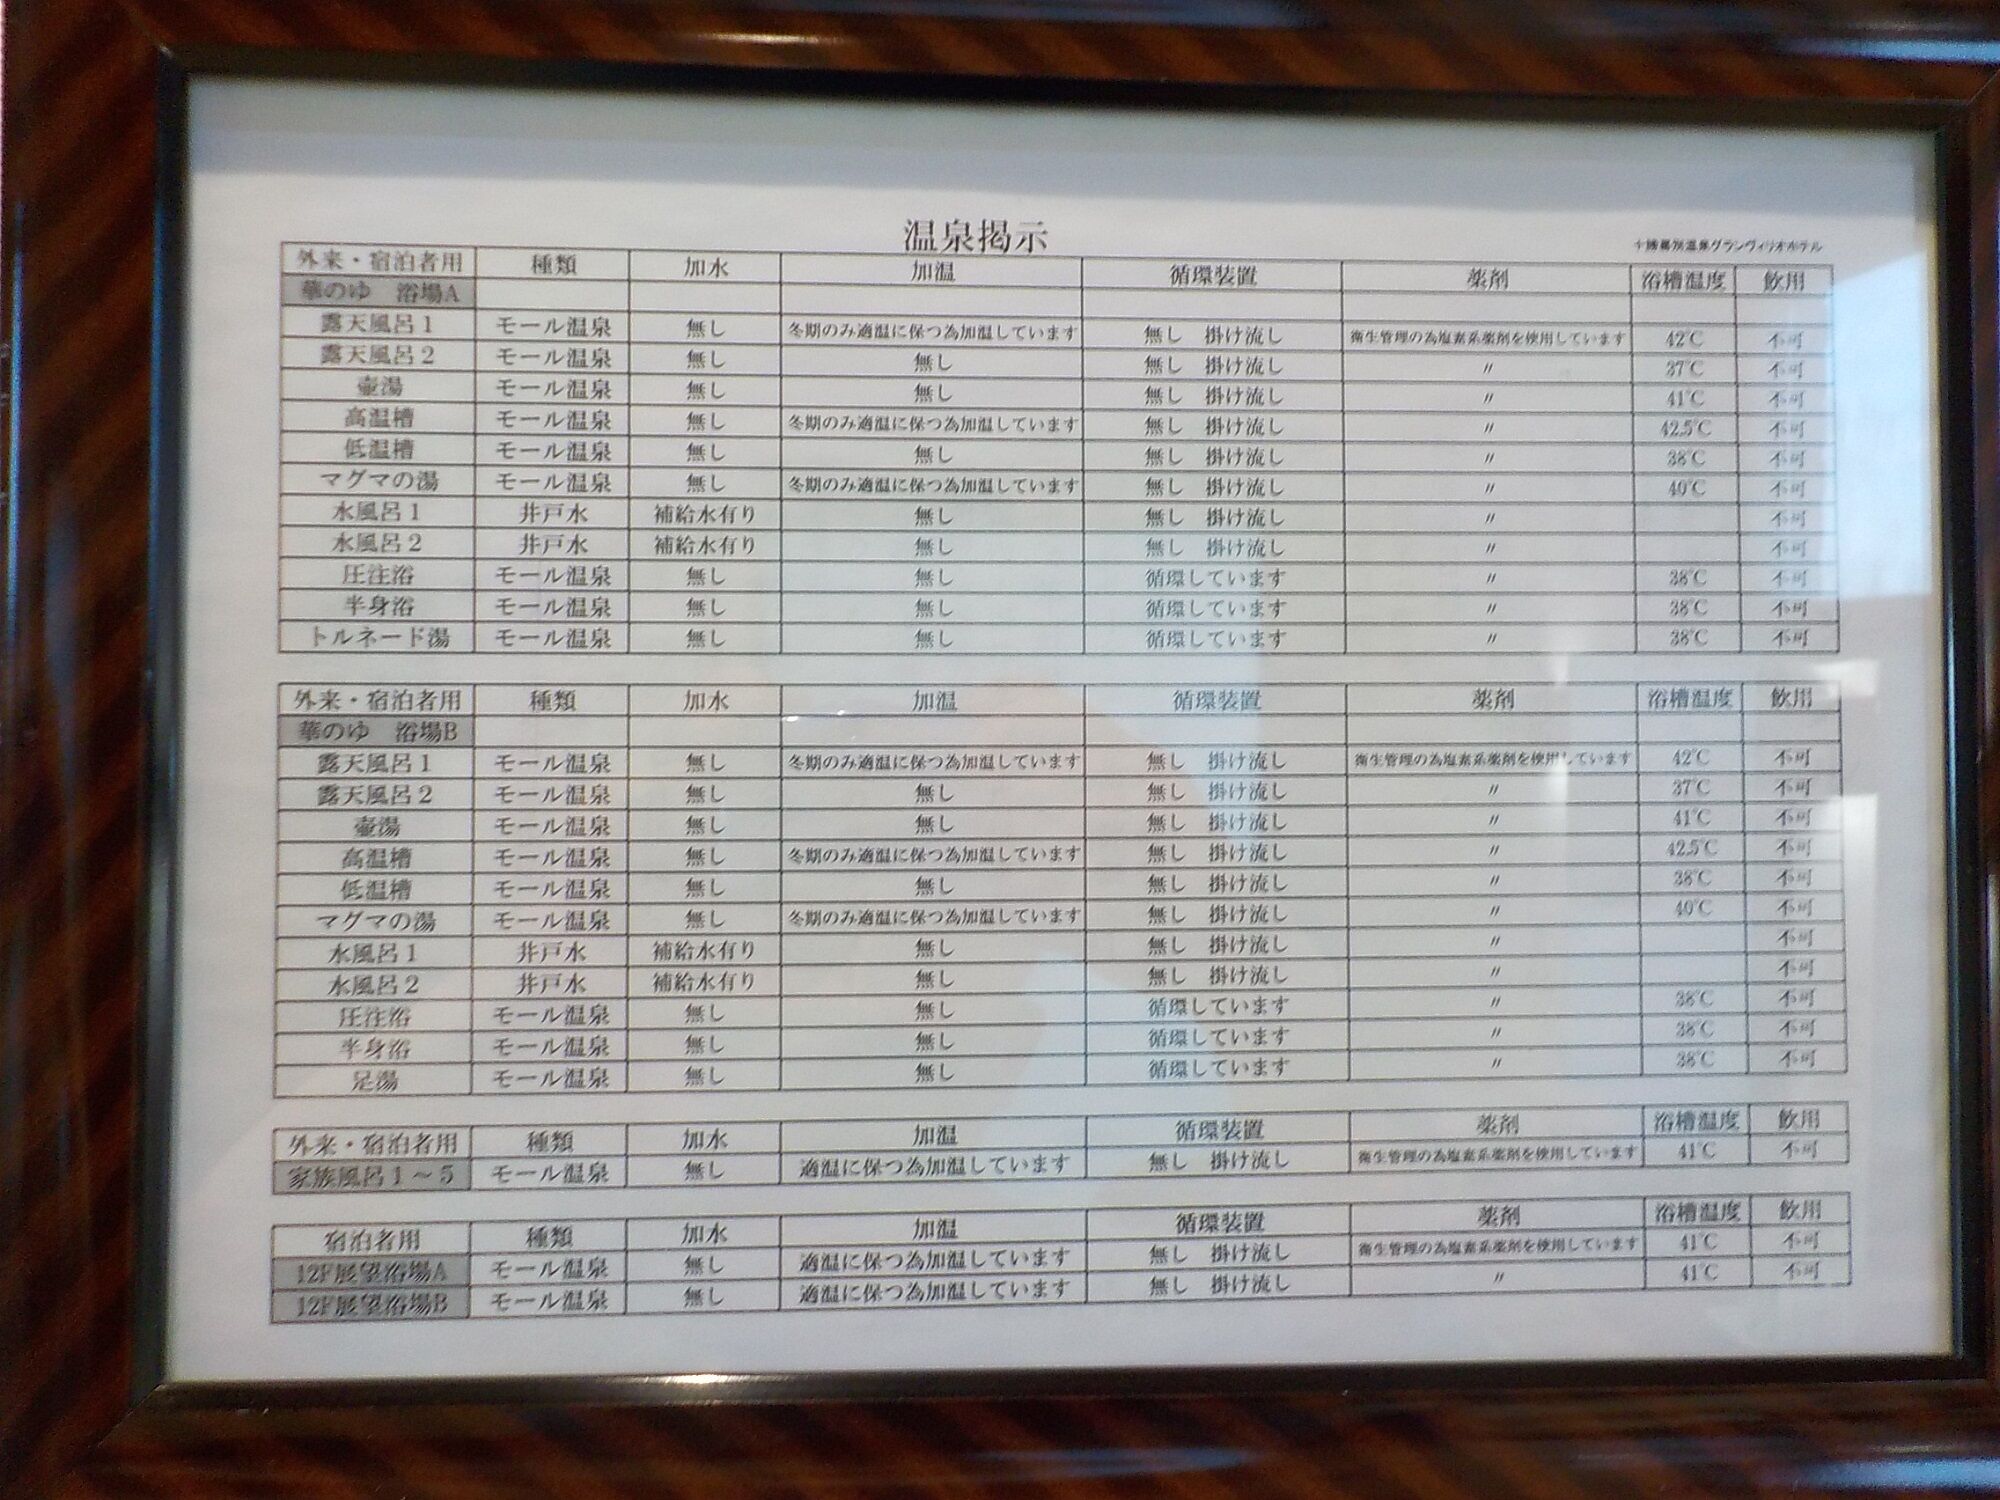 温泉掲示
十勝幕別温泉グランヴィリオホテル
外来・宿泊者用 種類 加水 加温 循環装置 薬剤 浴槽温度 飲用
華のゆ 浴場A
露天風呂1 モール温泉 無し 冬期のみ適温に保つ為加温しています 無し 掛け流し 衛生管理の為塩素系薬剤を使用しています 42℃ 不可
露天風呂2 モール温泉 無し 無し 無し 掛け流し 〃 37℃ 不可
壷湯 モール温泉 無し 無し 無し 掛け流し 〃 41℃ 不可
高温槽 モール温泉 無し 冬期のみ適温に保つ為加温しています 無し 掛け流し 〃 42.5℃ 不可
低温槽 モール温泉 無し 無し 無し 掛け流し 〃 38℃ 不可
マグマの湯 モール温泉 無し 冬期のみ適温に保つ為加温しています 無し 掛け流し 〃 40℃ 不可
水風呂1 井戸水 補給水有り 無し 無し 掛け流し 〃 不可
水風呂2 井戸水 補給水有り 無し 無し 掛け流し 〃 不可
圧注浴 モール温泉 無し 無し 循環しています 〃 38℃ 不可
半身浴 モール温泉 無し 無し 循環しています 〃 38℃ 不可
トルネード湯 モール温泉 無し 無し 循環しています 〃 38℃ 不可
外来・宿泊者用 種類 加水 加温 循環装置 薬剤 浴槽温度 飲用
華のゆ 浴場B
露天風呂1 モール温泉 無し 冬期のみ適温に保つ為加温しています 無し 掛け流し 衛生管理の為塩素系薬剤を使用しています 42℃ 不可
露天風呂2 モール温泉 無し 無し 無し 掛け流し 〃 37℃ 不可
壷湯 モール温泉 無し 無し 無し 掛け流し 〃 41℃ 不可
高温槽 モール温泉 無し 冬期のみ適温に保つ為加温しています 無し 掛け流し 〃 42.5℃ 不可
低温槽 モール温泉 無し 無し 無し 掛け流し 〃 38℃ 不可
マグマの湯 モール温泉 無し 冬期のみ適温に保つ為加温しています 無し 掛け流し 〃 40℃ 不可
水風呂1 井戸水 補給水有り 無し 無し 掛け流し 〃 不可
水風呂2 井戸水 補給水有り 無し 無し 掛け流し 〃 不可
圧注浴 モール温泉 無し 無し 循環しています 〃 38℃ 不可
半身浴 モール温泉 無し 無し 循環しています 〃 38℃ 不可
足湯 モール温泉 無し 無し 循環しています 〃 38℃ 不可
外来・宿泊者用 種類 加水 加温 循環装置 薬剤 浴槽温度 飲用
家族風呂1~5 モール温泉 無し 適温に保つ為加温しています 無し 掛け流し 衛生管理の為塩素系薬剤を使用しています 41℃ 不可
宿泊者用 種類 加水 加温 循環装置 薬剤 浴槽温度 飲用
12F展望浴場A モール温泉 無し 適温に保つ為加温しています 無し 掛け流し 衛生管理の為塩素系薬剤を使用しています 41℃ 不可
12F展望浴場B モール温泉 無し 適温に保つ為加温しています 無し 掛け流し 〃 41℃ 不可